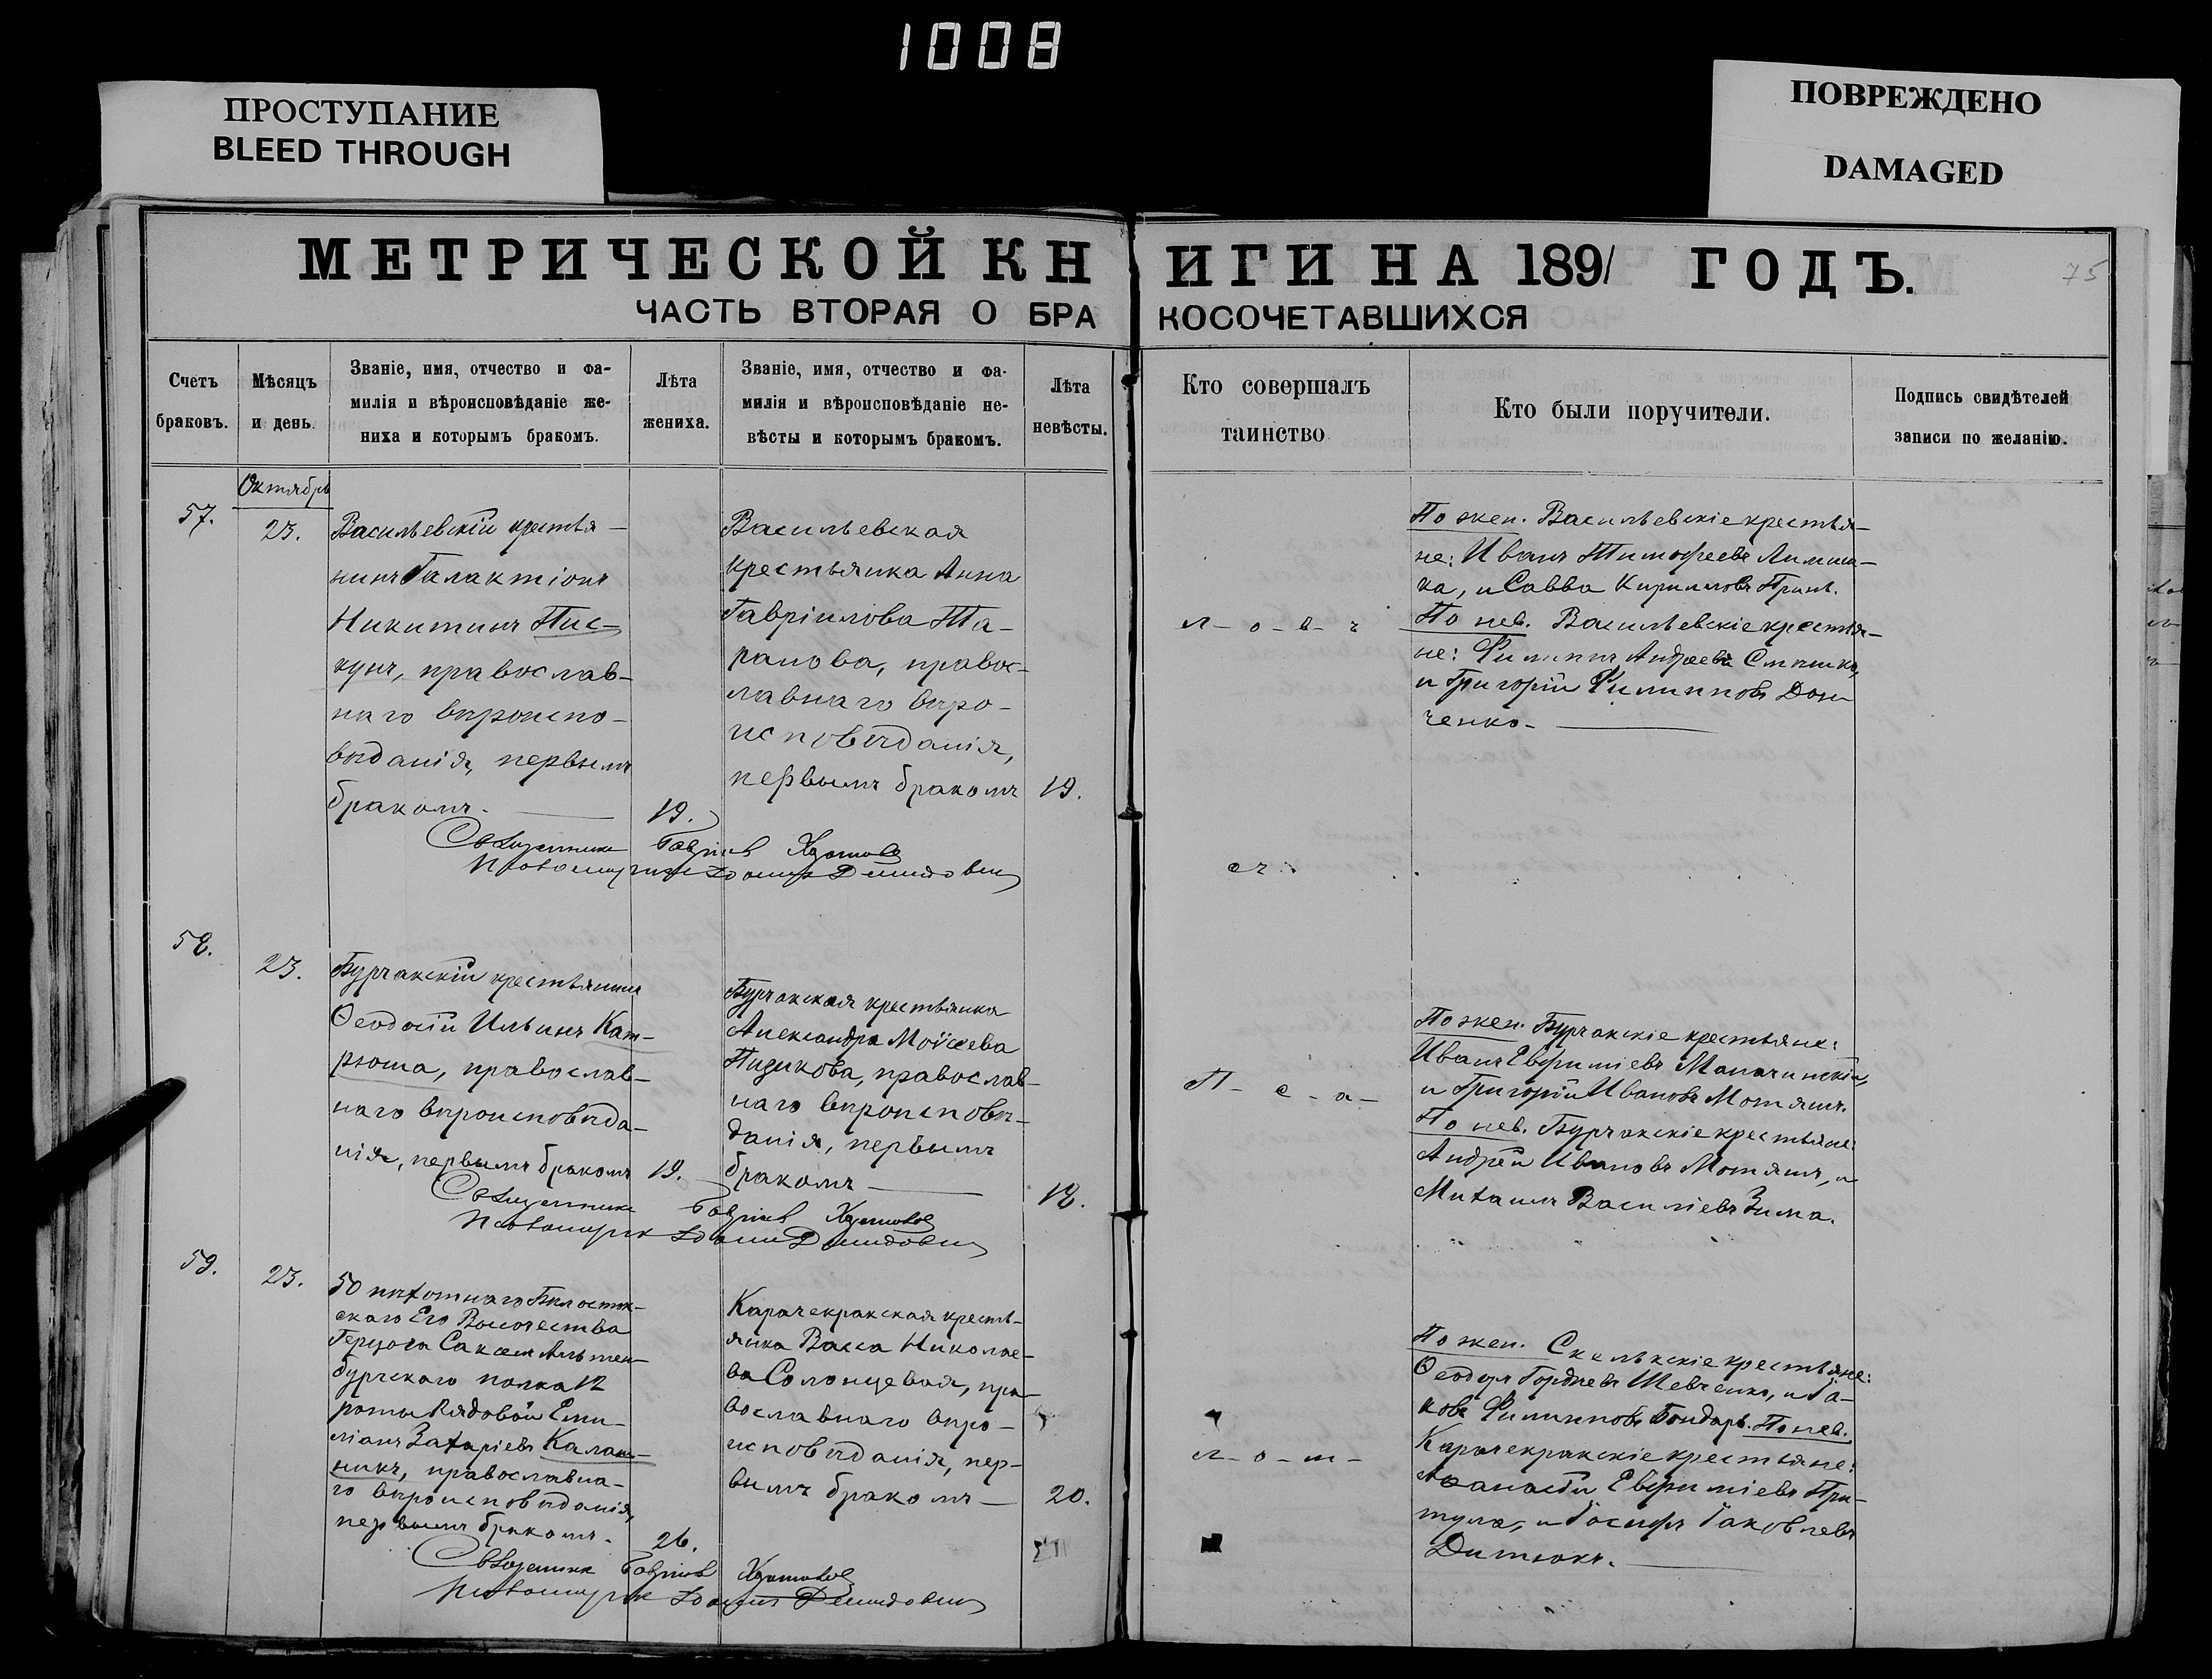 1008
ПРОСТУПАНИЕ
BLEED THROUGH
ПОВРЕЖДЕНО
DAMAGED
МЕТРИЧЕСКОЙ КНИГИ НА 1891 ГОДЪ.
75
ЧАСТЬ ВТОРАЯ О БРАКОСОЧЕТАВШИХСЯ
Счетъ
браковъ.
Мѣсяцъ
и день.
Званіе, имя, отчество и фа-
милія и вѣроисповѣданіе же-
ниха и которымъ бракомъ.
Лѣта
жениха.
Званіе, имя, отчество и фа-
милія и вѣроисповѣданіе не-
вѣсты и которымъ бракомъ.
Лѣта
невѣсты.
Кто совершалъ
таинство
Кто были поручители.
Подпись свидѣтелей
записи по желанію.
Октябрь
57.
23.
Васильевскій крестья-
нинъ Галактіонъ
Никитинъ Пис-
кунъ, православ-
наго вѣроиспо-
вѣданія, первымъ
бракомъ.
19.
Васильевская
крестьянка Анна
Гавріилова Та-
ранова, правос-
лавнаго вѣро-
исповѣданія,
первымъ бракомъ
19.
Священникъ Гавріилъ
л-о-в-ъ
съ
По жен. Васильевскіе крестья-
не: Иванъ Тимофеевъ
ка, и Савва Кирилловъ
По нев. Васильевскіе крестья-
не: Филиппъ Андреевъ
и Григорій Филипповъ Дон-
ченко.
58.
23.
Бурчакскій крестьянинъ
Ѳеодосій Ильинъ Кат-
рюша, православ-
наго вѣроисповѣда-
нія, первымъ бракомъ
19.
Бурчакская крестьянка
Александра Моѵсеева
православ-
наго вѣроисповѣ-
данія, первымъ
бракомъ
18.
Священникъ Гавріилъ
П-с-а-
По жен. Бурчакскіе крестьяне:
Иванъ Евфиміевъ
и Григорій Ивановъ Мотяшъ.
По нев. Бурчакскіе крестьяне:
Андрей Ивановъ Мотяшъ, и
Михаилъ Василіевъ Зима.
59.
23.
50 пѣхотнаго Бѣлосток-
скаго Его Высочества
Герцога Саксен Альтен-
бургскаго полка 12
роты Рядовой Еми-
ліанъ Захаріевъ Калаш-
никъ, православна-
го вѣроисповѣданія,
первымъ бракомъ.
26.
Карачекракская кресть-
янка Васса Николае-
ва Солонцевая, пра-
вославнаго вѣро-
исповѣданія, пер-
вымъ бракомъ
20.
Священникъ Гавріилъ
л-о-т-
По жен. Скельскіе крестьяне:
Ѳеодоръ Гордѣевъ Шевченко, и Іа-
ковъ Филипповъ Бондарь. По нев.
Карачекракскіе крестьяне:
Аѳанасій Евфиміевъ При-
тула, и Іосифъ Іаковлевъ
Дитюкъ.